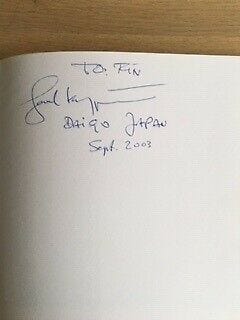 TO. FIN
DAIGO JAPAN
Sept. 2003